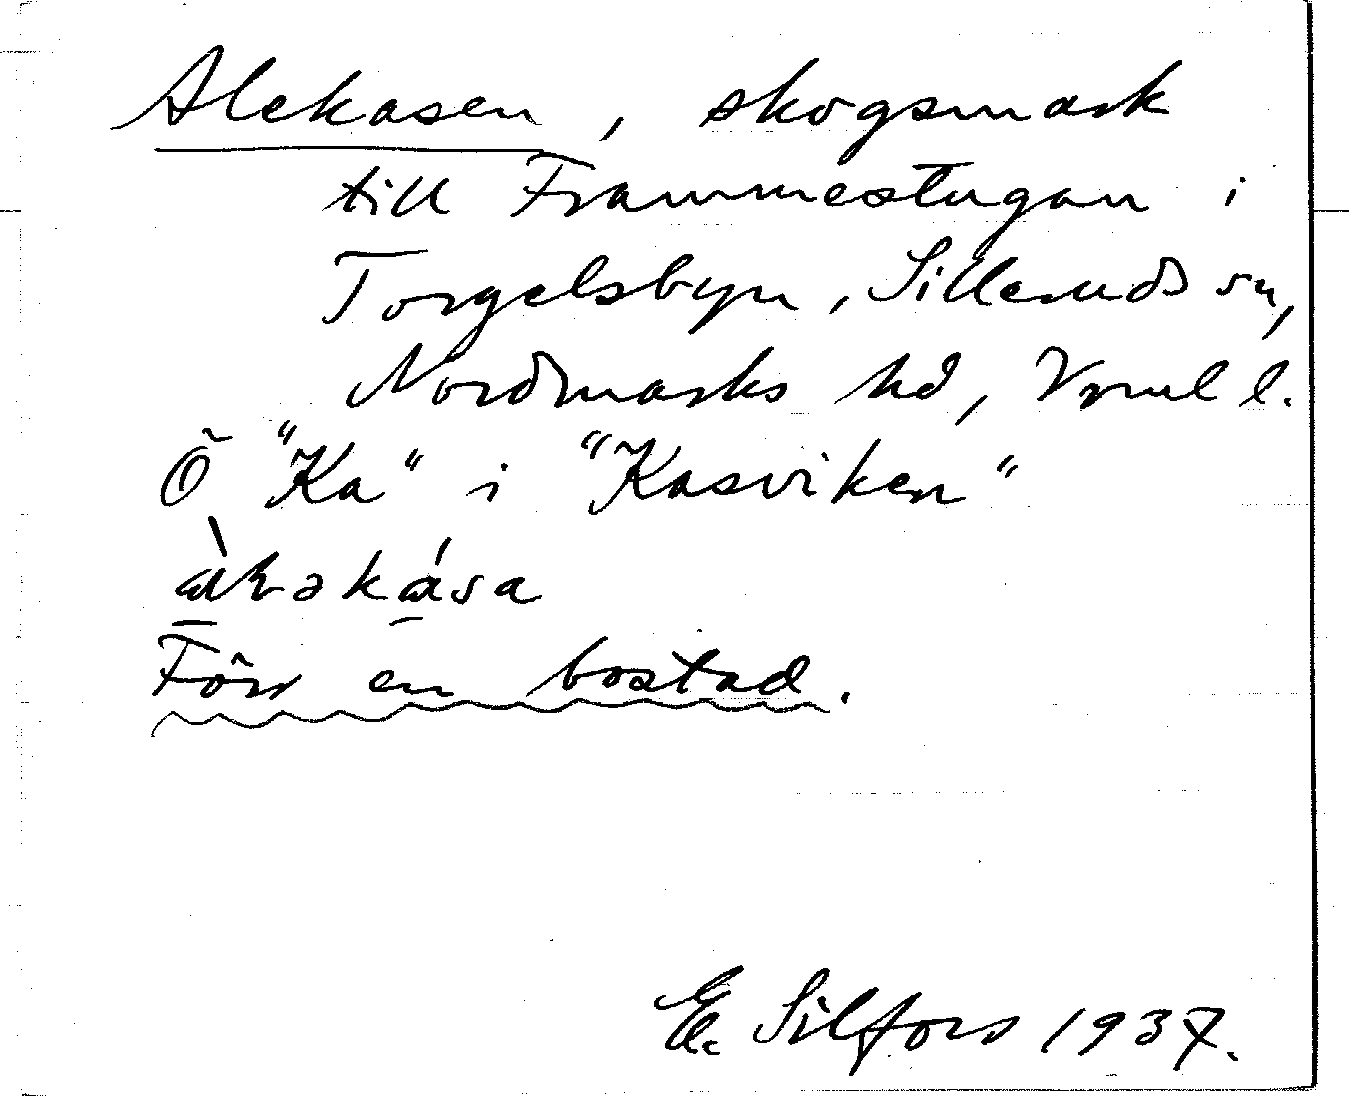 Alekasen, skogsmark
till Frammestugan i
Torgelsbyn, Silleruds sn,
Nordmarks hd, Vrml l.
Ö "Ka" i "Kasviken"
Förr en bostad.
E. Silfors 1937.